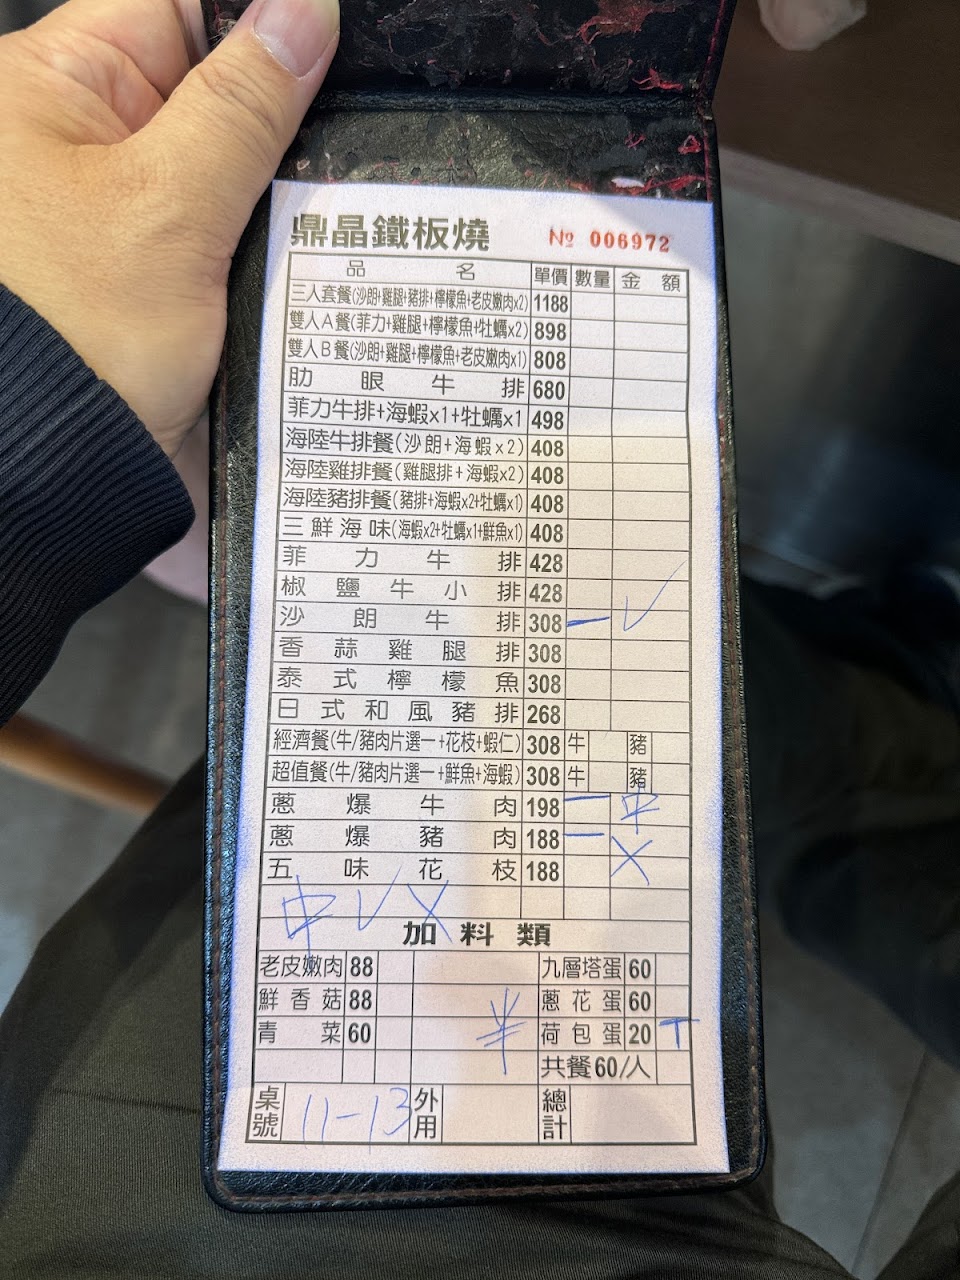 鼎晶鐵板燒 № 006972
品名 單價 數量 金額
三人套餐(沙朗+雞腿+豬排+檸檬魚+老皮嫩肉x2) 1188
雙人A餐(菲力+雞腿+檸檬魚+牡蠣x2) 898
雙人B餐(沙朗+雞腿+檸檬魚+老皮嫩肉x1) 808
肋眼牛排 680
菲力牛排+海蝦x1+牡蠣x1 498
海陸牛排餐(沙朗+海蝦x2) 408
海陸雞排餐(雞腿排+海蝦x2) 408
海陸豬排餐(豬排+海蝦x2+牡蠣x1) 408
三鮮海味(海蝦x2+牡蠣x1+鮮魚x1) 408
菲力牛排 428
椒鹽牛小排 428
沙朗牛排 308 一 ✓
香蒜雞腿排 308
泰式檸檬魚 308
日式和風豬排 268
經濟餐(牛/豬肉片選一+花枝+蝦仁) 308 牛 豬
超值餐(牛/豬肉片選一+鮮魚+海蝦) 308 牛 豬
蔥爆牛肉 198 一 中
蔥爆豬肉 188 一 X
五味花枝 188
中 ✓ X
加料類
老皮嫩肉 88 九層塔蛋 60
鮮香菇 88 半 蔥花蛋 60
青菜 60 荷包蛋 20 T
共餐60/人
桌號 11-13 外用 總計